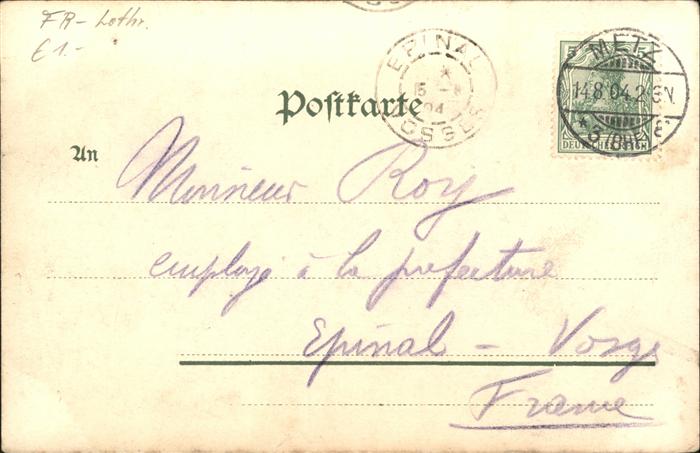 FR- Lothr.
€ 1.-
EPINAL
04
VOSGES
5 5
METZ
14.8.04.2-3N
DEUTSCHES REICH
Postkarte
An
Monsieur Roy
employé à la prefecture
Epinal - Vosge
France